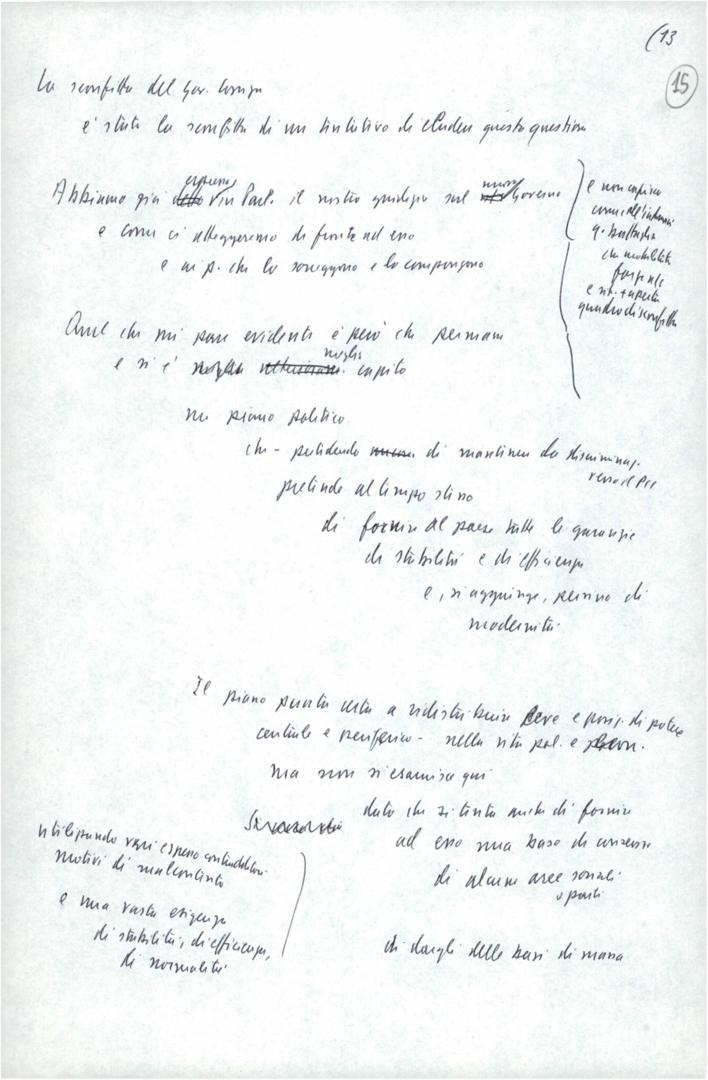 (13
15
La sconfitta del Gov. Cossiga
è stata la sconfitta di un tentativo di eludere questa questione
espresso nuovo
Abbiamo già in Parl. il nostro giudizio sul Governo
e come ci atteggeremo di fronte ad esso
e ai p. che lo sorreggono e lo compongono
e non capisco
come all'interno
q. battaglia
che mobilita
forze ecc
e sit. + aperta
quadro di sconfitta
Quel che mi pare evidente è però che permane
meglio
e si è capito
un piano politico
che - pretendendo di mantenere la discriminaz.
verso il PCI
pretende al tempo stesso
di fornire al paese tutte le garanzie
di stabilità e di efficienza
e, si aggiunge, persino di
modernità
Il piano punta certo a ridistribuire leve e posiz. di potere
centrale e periferico - nella vita pol. e econ.
ma non si esaurisce qui
dato che si tenta anche di fornire
ad esso una base di consenso
di alcune aree sociali
o parti
di dargli delle basi di massa
utilizzando vari e spesso contraddittori
motivi di malcontento
e una vasta esigenza
di stabilità, di efficienza,
di normalità